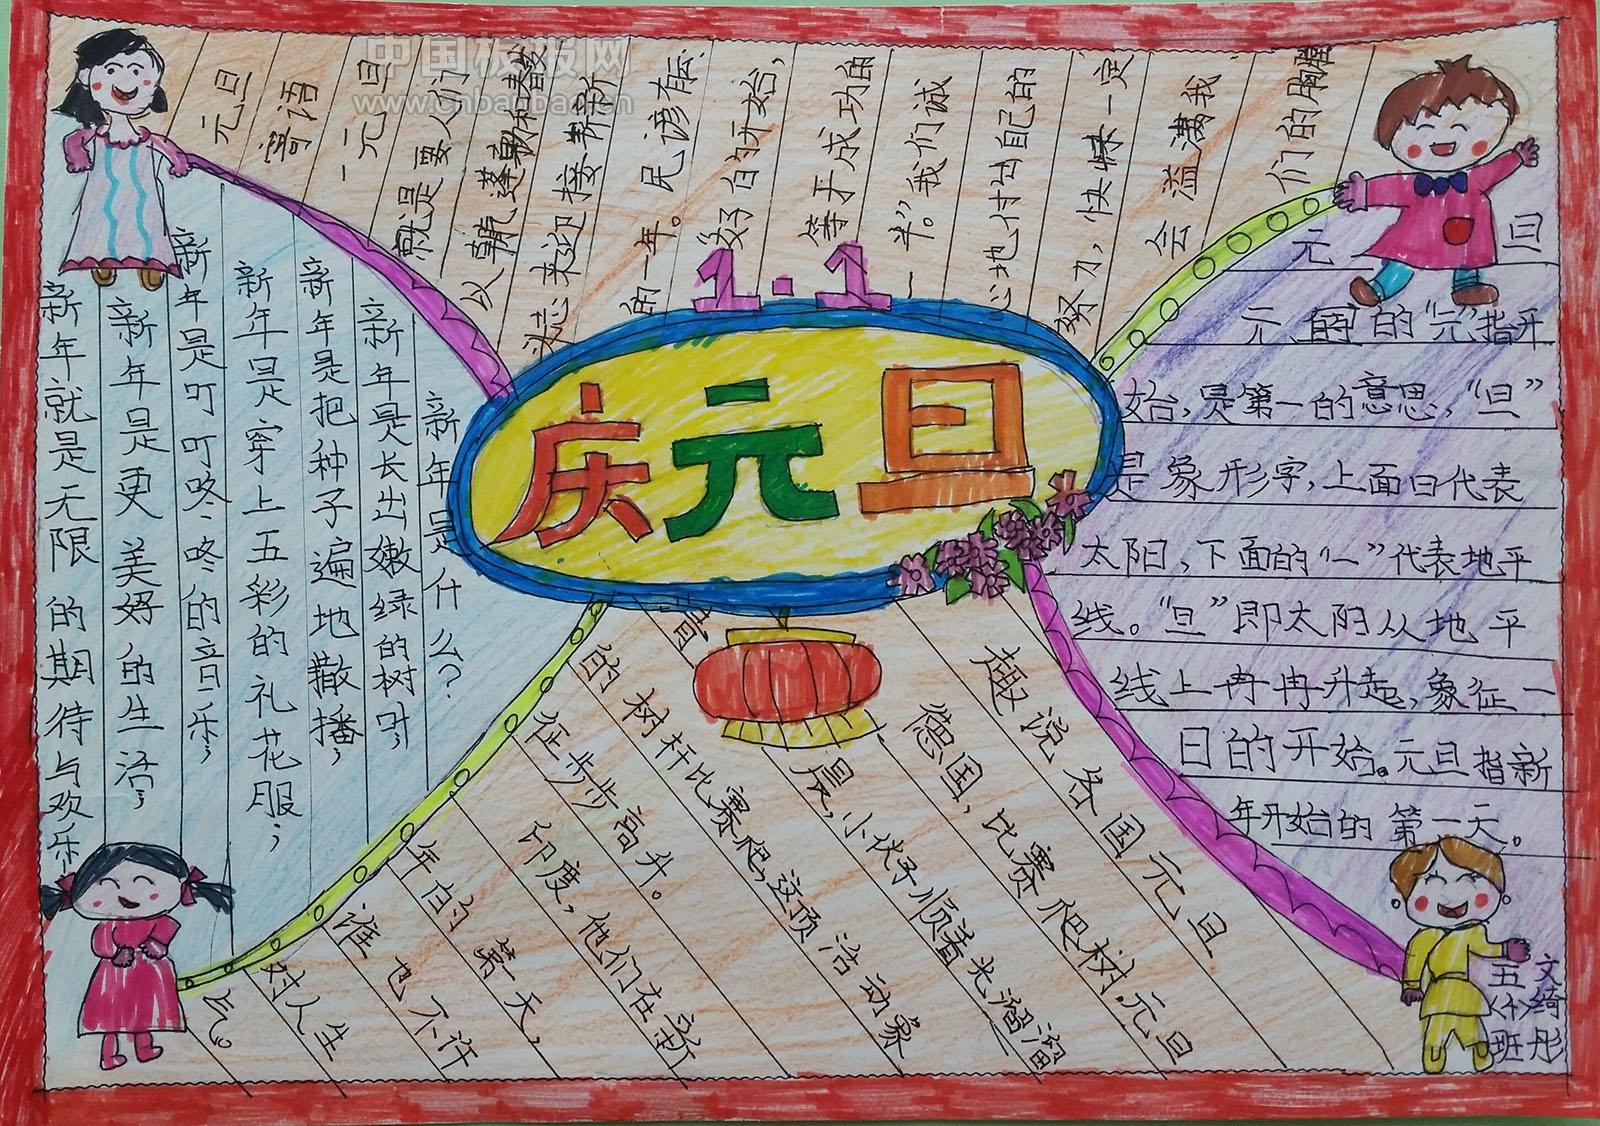 中国板报网
www.cnbanbao.cn
元旦
寄语
一元旦
就是要人们
以朝气蓬勃和
斗志来迎接崭新
的一年。民谚有云:
“好的开始,
等于成功的
一半。”我们诚
心地付出自己的
努力,快乐一定
会溢满我
们的胸膛
1·1
庆元旦
新年是什么?
新年是长出嫩绿的树叶;
新年是把种子遍地撒播;
新年是穿上五彩的礼花服;
新年是叮叮咚咚的音乐;
新年是更美好的生活;
新年就是无限的期待与欢乐
元旦
元旦的“元”指开
始,是第一的意思,“旦”
是象形字,上面日代表
太阳,下面的“一”代表地平
线。“旦”即太阳从地平
线上冉冉升起,象征一
日的开始。元旦指新
年开始的第一天。
趣说各国元旦
德国,比赛爬树.元旦
清晨,小伙子顺着光溜溜
的树杆比赛爬,这项活动象
征步步高升。
印度,他们在新
年的第天,
谁也不许
对人生
气。
五〈十〉班
文绮彤